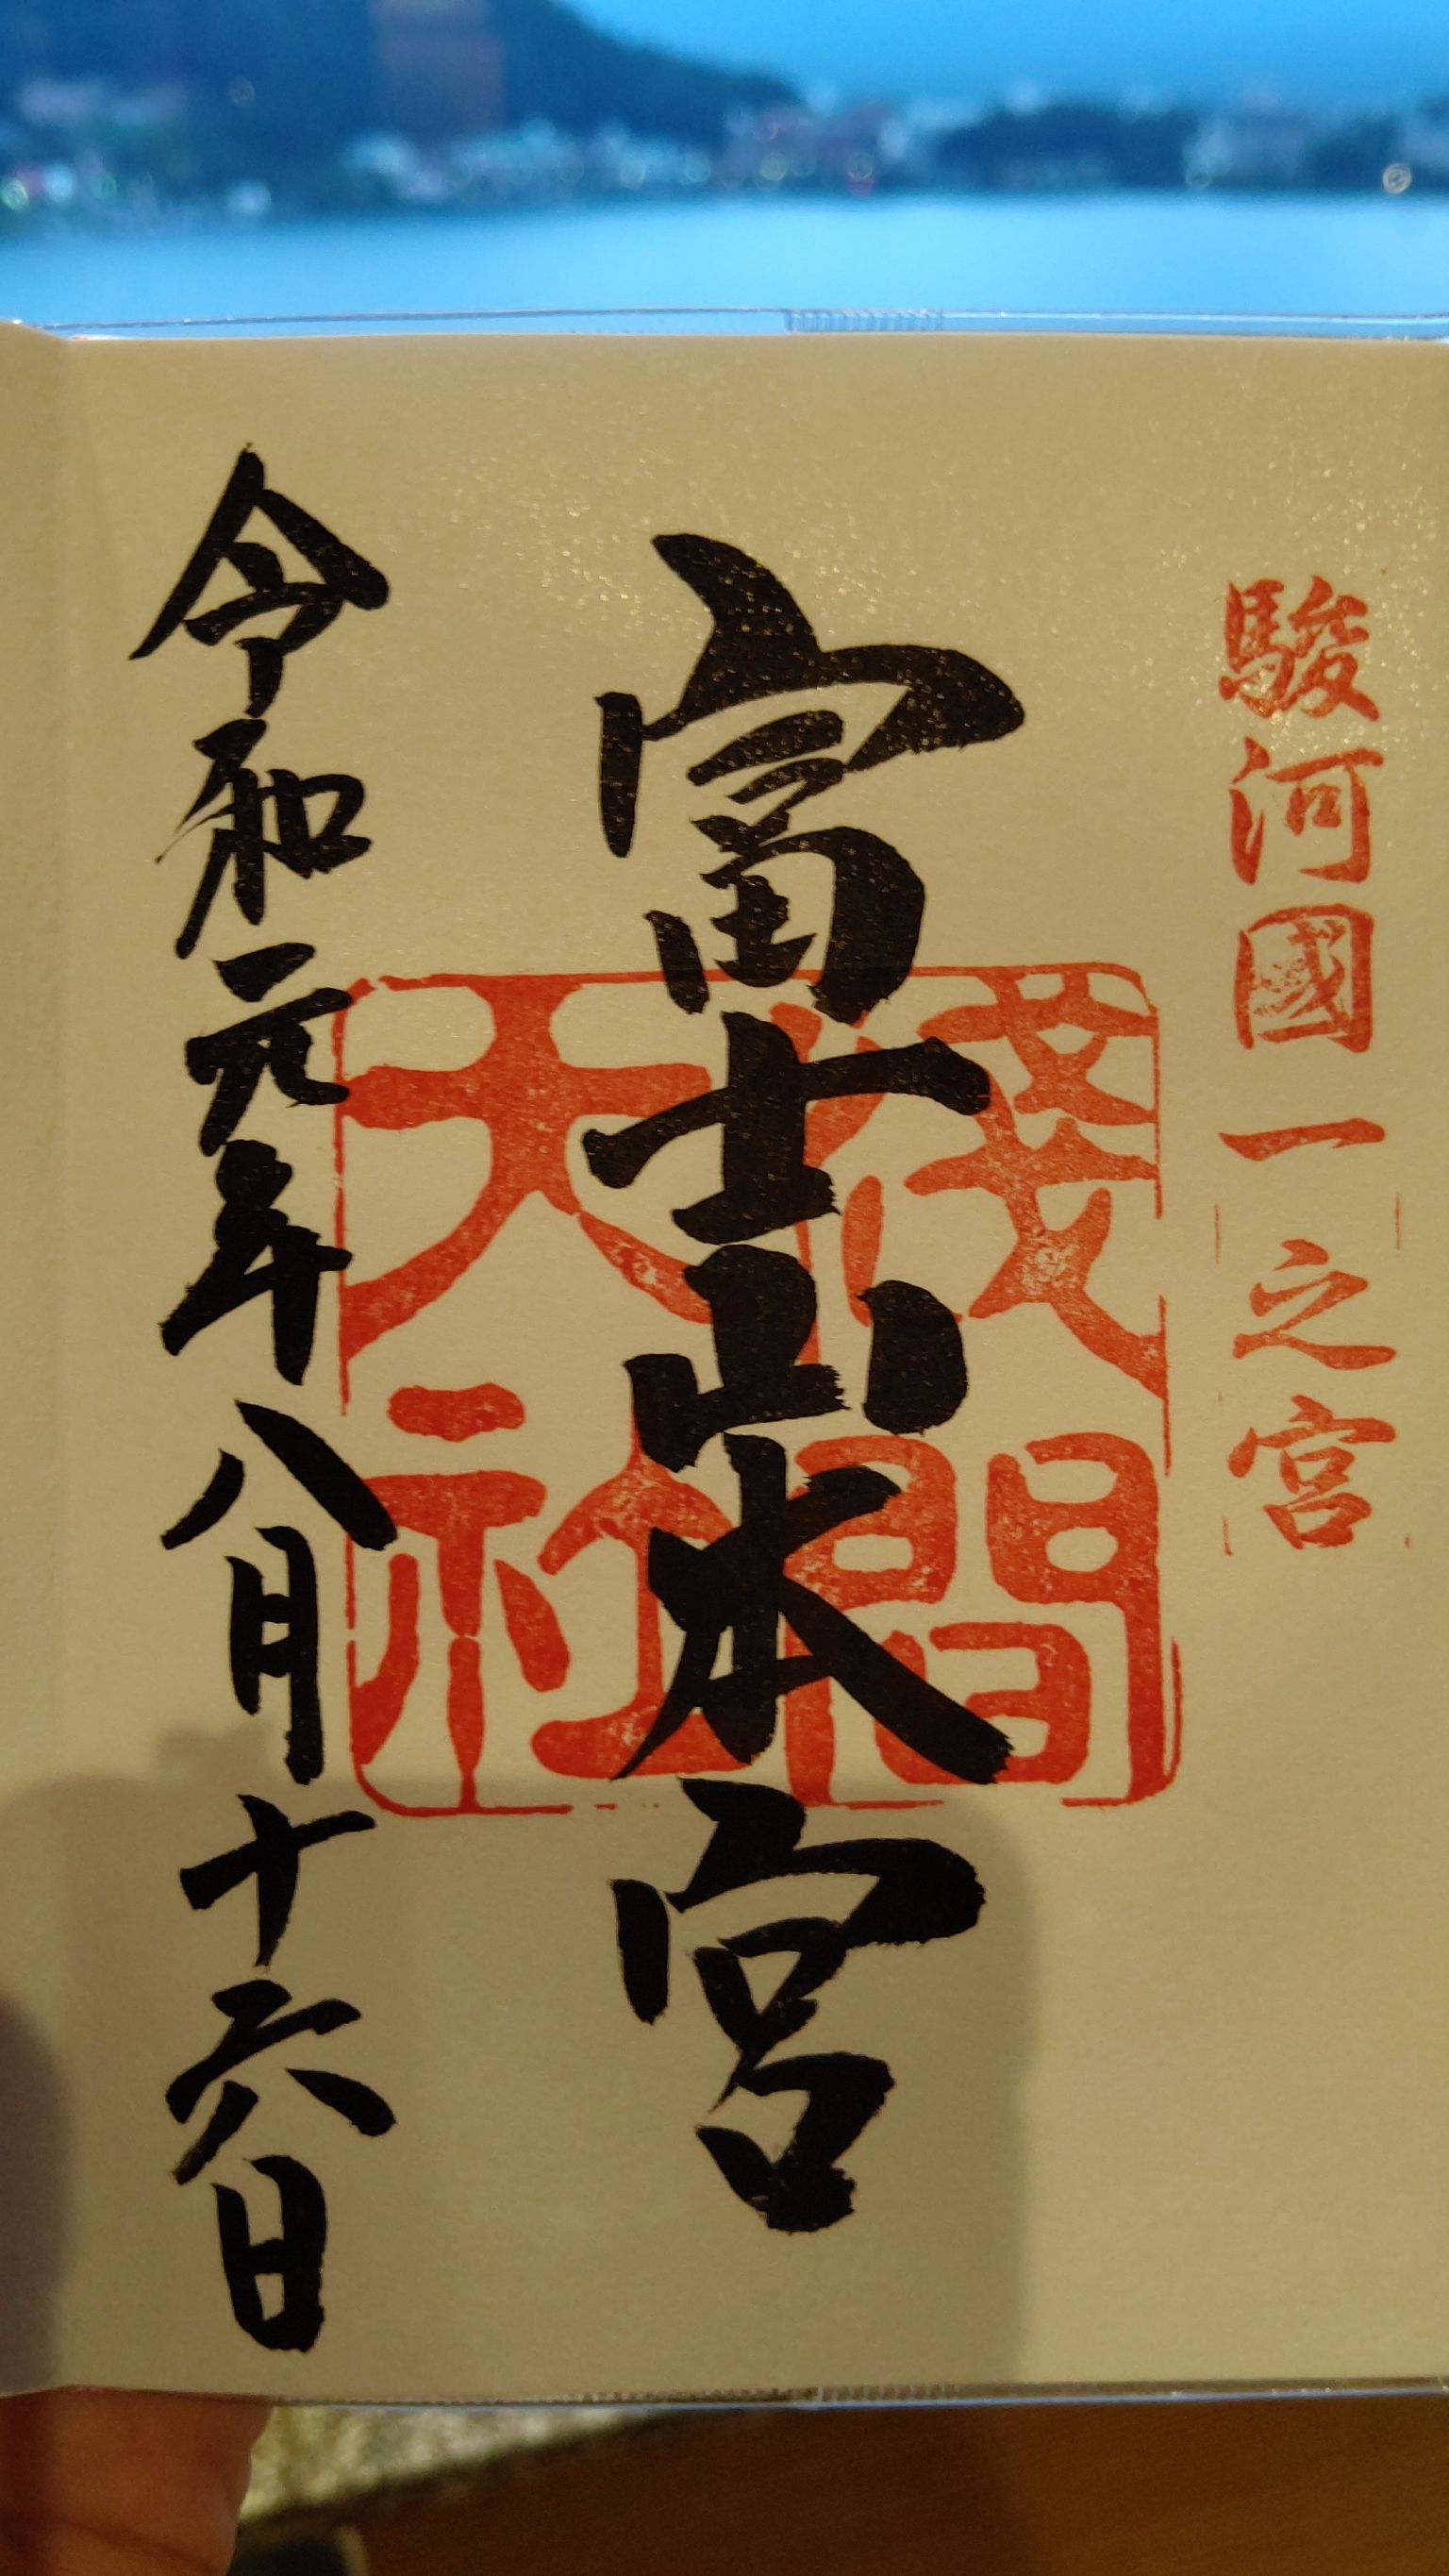 駿河國一之宮
富士山本宮
淺間
大社
令和元年八月十六日